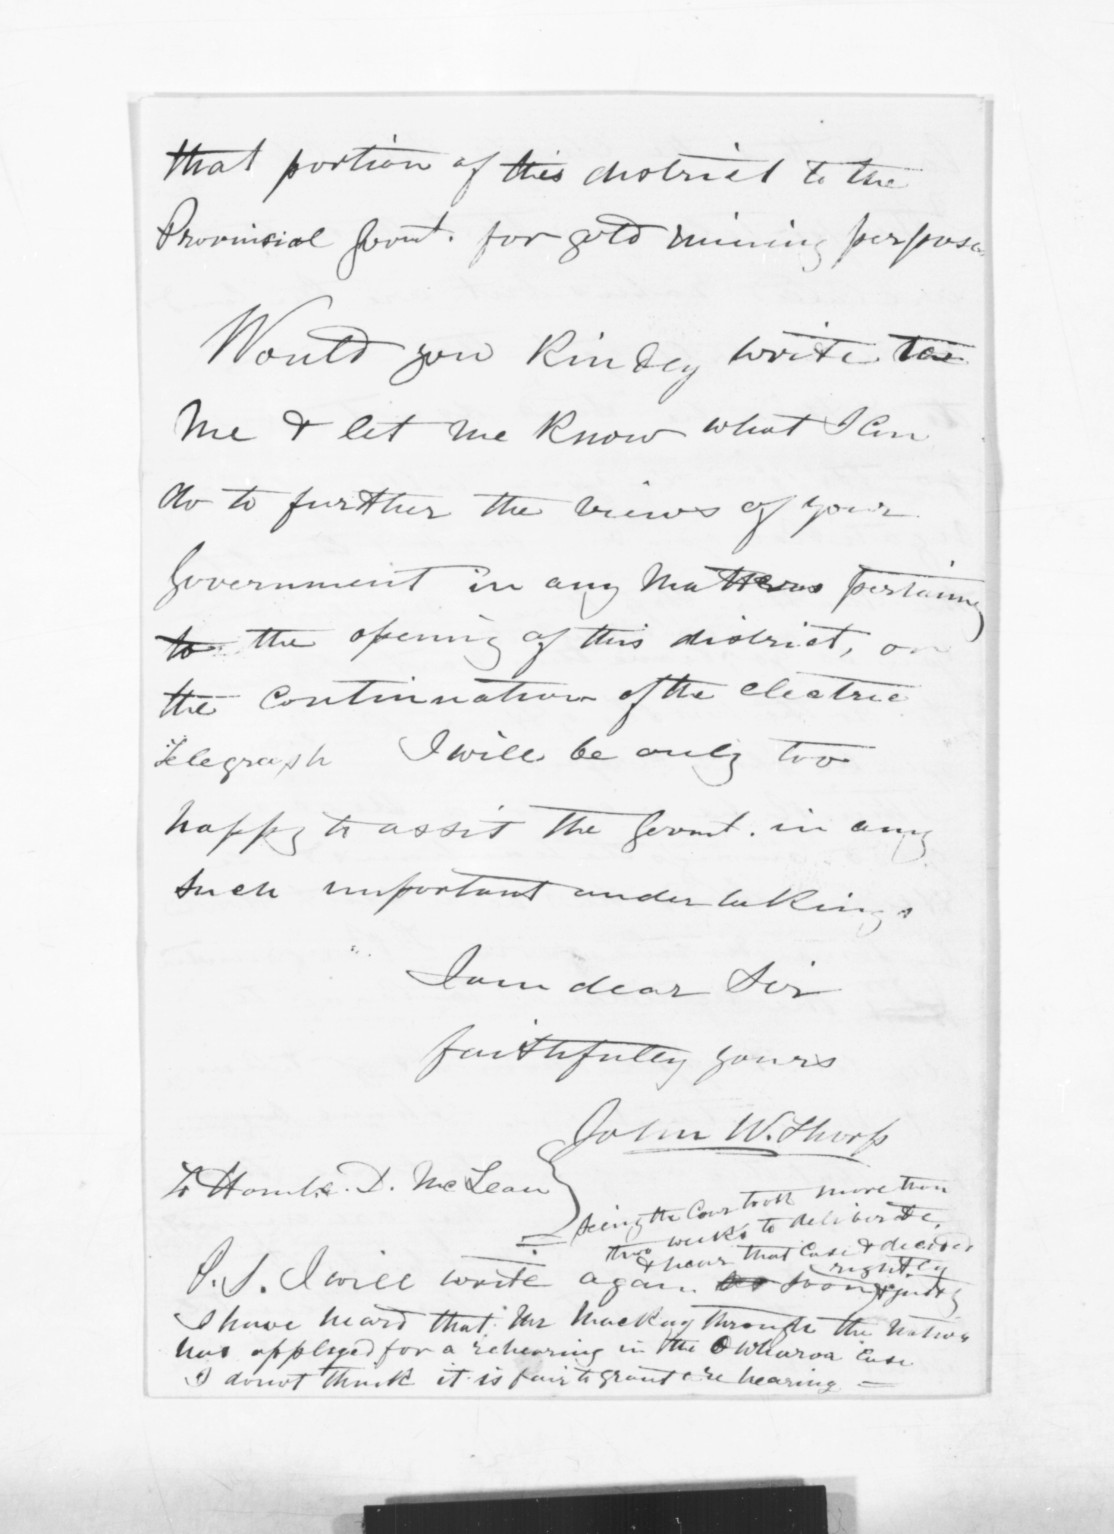 that portion of this district to the
Provinsial Govmt. for gold mining perposes
Would you kindly write to
me & let me know what I can
do to further the views of your
Government in any matters pertaining
to the opening of this district, or
the continuation of the electric
Telegraph I will be only too
happy to assist the Govmt. in any
such important undertakings
I am dear Sir
faithfully yours
John W. Thorp
To Honble. D. McLean
P.S. I will write again soon
I have heard that Mr Mackay through the Natives
has applyed for a rehearing in the Owharoa case
I do not think it is fair to grant a rehearing
seeing the Court took more than
two weeks to deliberate,
& hear that case & decided
rightly
& justly